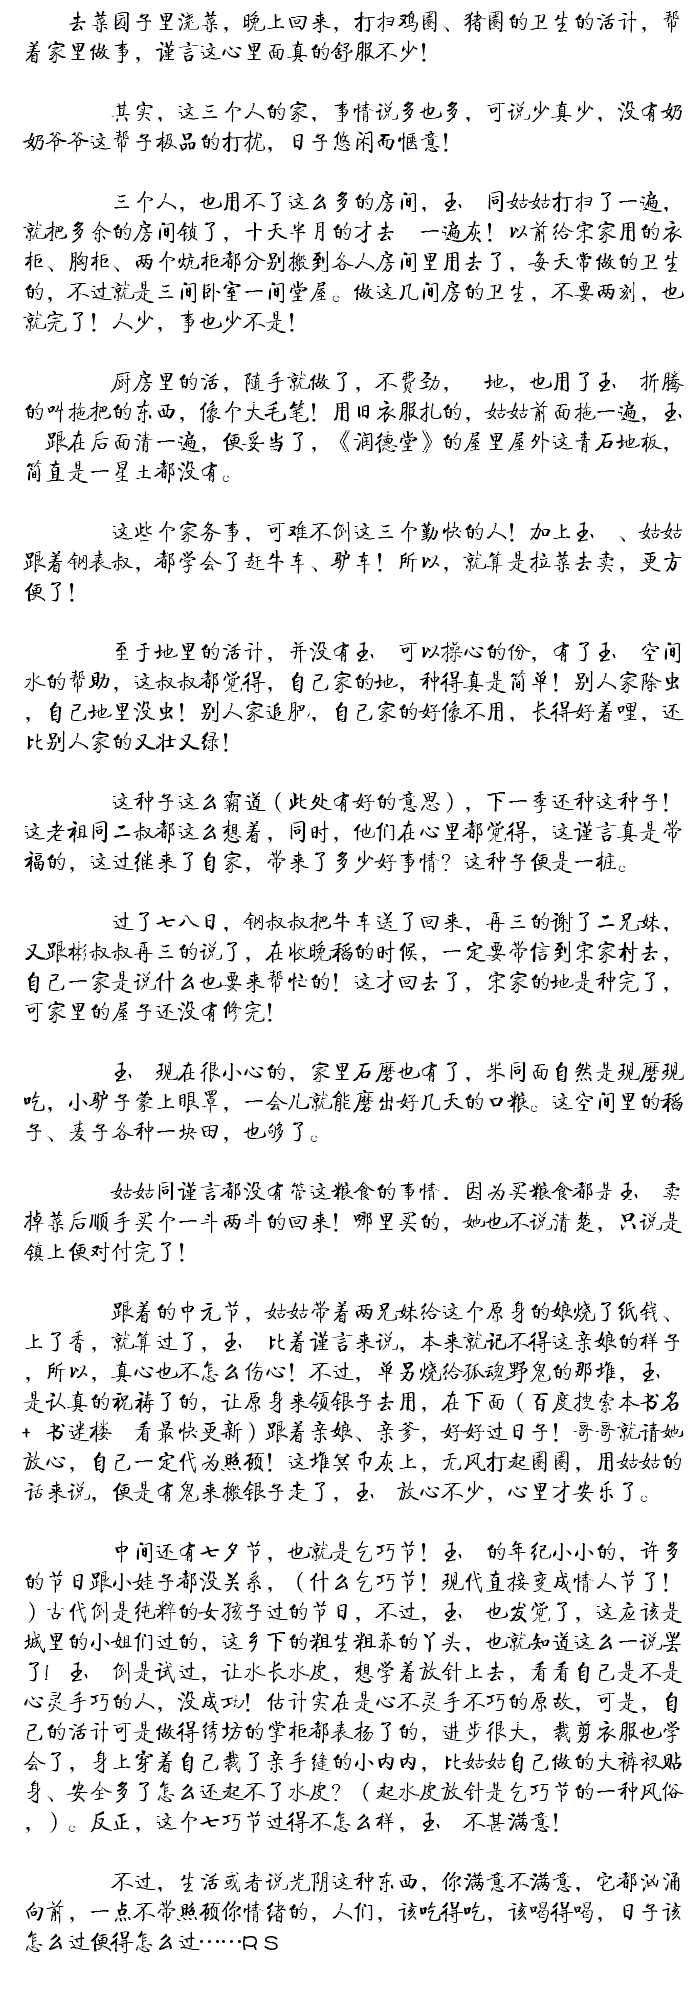 去菜园子里浇菜，晚上回来，打扫鸡圈、猪圈的卫生的活计，帮
着家里做事，谨言这心里面真的舒服不少！
其实，这三个人的家，事情说多也多，可说少真少，没有奶
奶爷爷这帮子极品的打扰，日子悠闲而惬意！
三个人，也用不了这么多的房间，玉 同姑姑打扫了一遍，
就把多余的房间锁了，十天半月的才去 一遍灰！以前给宋家用的衣
柜、胸柜、两个炕柜都分别搬到各人房间里用去了，每天常做的卫生
的，不过就是三间卧室一间堂屋。做这几间房的卫生，不要两刻，也
就完了！人少，事也少不是！
厨房里的活，随手就做了，不费劲， 地，也用了玉 折腾
的叫拖把的东西，像个大毛笔！用旧衣服扎的，姑姑前面拖一遍，玉
跟在后面清一遍，便妥当了，《润德堂》的屋里屋外这青石地板，
简直是一星土都没有。
这些个家务事，可难不倒这三个勤快的人！加上玉 、姑姑
跟着钢表叔，都学会了赶牛车、驴车！所以，就算是拉菜去卖，更方
便了！
至于地里的活计，并没有玉 可以操心的份，有了玉 空间
水的帮助，这叔叔都觉得，自己家的地，种得真是简单！别人家除虫
，自己地里没虫！别人家追肥，自己家的好像不用，长得好着哩，还
比别人家的又壮又绿！
这种子这么霸道（此处有好的意思），下一季还种这种子！
这老祖同二叔都这么想着，同时，他们在心里都觉得，这谨言真是带
福的，这过继来了自家，带来了多少好事情？这种子便是一桩。
过了七八日，钢叔叔把牛车送了回来，再三的谢了二兄妹，
又跟彬叔叔再三的说了，在收晚稻的时候，一定要带信到宋家村去，
自己一家是说什么也要来帮忙的！这才回去了，宋家的地是种完了，
可家里的屋子还没有修完！
玉 现在很小心的，家里石磨也有了，米同面自然是现磨现
吃，小驴子蒙上眼罩，一会儿就能磨出好几天的口粮。这空间里的稻
子、麦子各种一块田，也够了。
姑姑同谨言都没有管这粮食的事情．因为买粮食都是玉 卖
掉菜后顺手买个一斗两斗的回来！哪里买的，她也不说清楚，只说是
镇上便对付完了！
跟着的中元节，姑姑带着两兄妹给这个原身的娘烧了纸钱、
上了香，就算过了，玉 比着谨言来说，本来就记不得这亲娘的样子
，所以，真心也不怎么伤心！不过，单另烧给孤魂野鬼的那堆，玉
是认真的祝祷了的，让原身来领银子去用，在下面（百度搜索本书名
+ 书迷楼 看最快更新）跟着亲娘、亲爹，好好过日子！哥哥就请她
放心，自己一定代为照顾！这堆冥币灰上，无风打起圈圈，用姑姑的
话来说，便是有鬼来搬银子走了，玉 放心不少，心里才安乐了。
中间还有七夕节，也就是乞巧节！玉 的年纪小小的，许多
的节日跟小娃子都没关系，（什么乞巧节！现代直接变成情人节了！
）古代倒是纯粹的女孩子过的节日，不过，玉 也发觉了，这应该是
城里的小姐们过的，这乡下的粗生粗养的丫头，也就知道这么一说罢
了！玉 倒是试过，让水长水皮，想学着放针上去，看看自己是不是
心灵手巧的人，没成功！估计实在是心不灵手不巧的原故，可是，自
己的活计可是做得绣坊的掌柜都表扬了的，进步很大，裁剪衣服也学
会了，身上穿着自己裁了亲手缝的小内内，比姑姑自己做的大裤衩贴
身、安全多了怎么还起不了水皮？（起水皮放针是乞巧节的一种风俗
，）。反正，这个七巧节过得不怎么样，玉 不甚满意！
不过，生活或者说光阴这种东西，你满意不满意，它都汹涌
向前，一点不带照顾你情绪的，人们，该吃得吃，该喝得喝，日子该
怎么过便得怎么过……RS